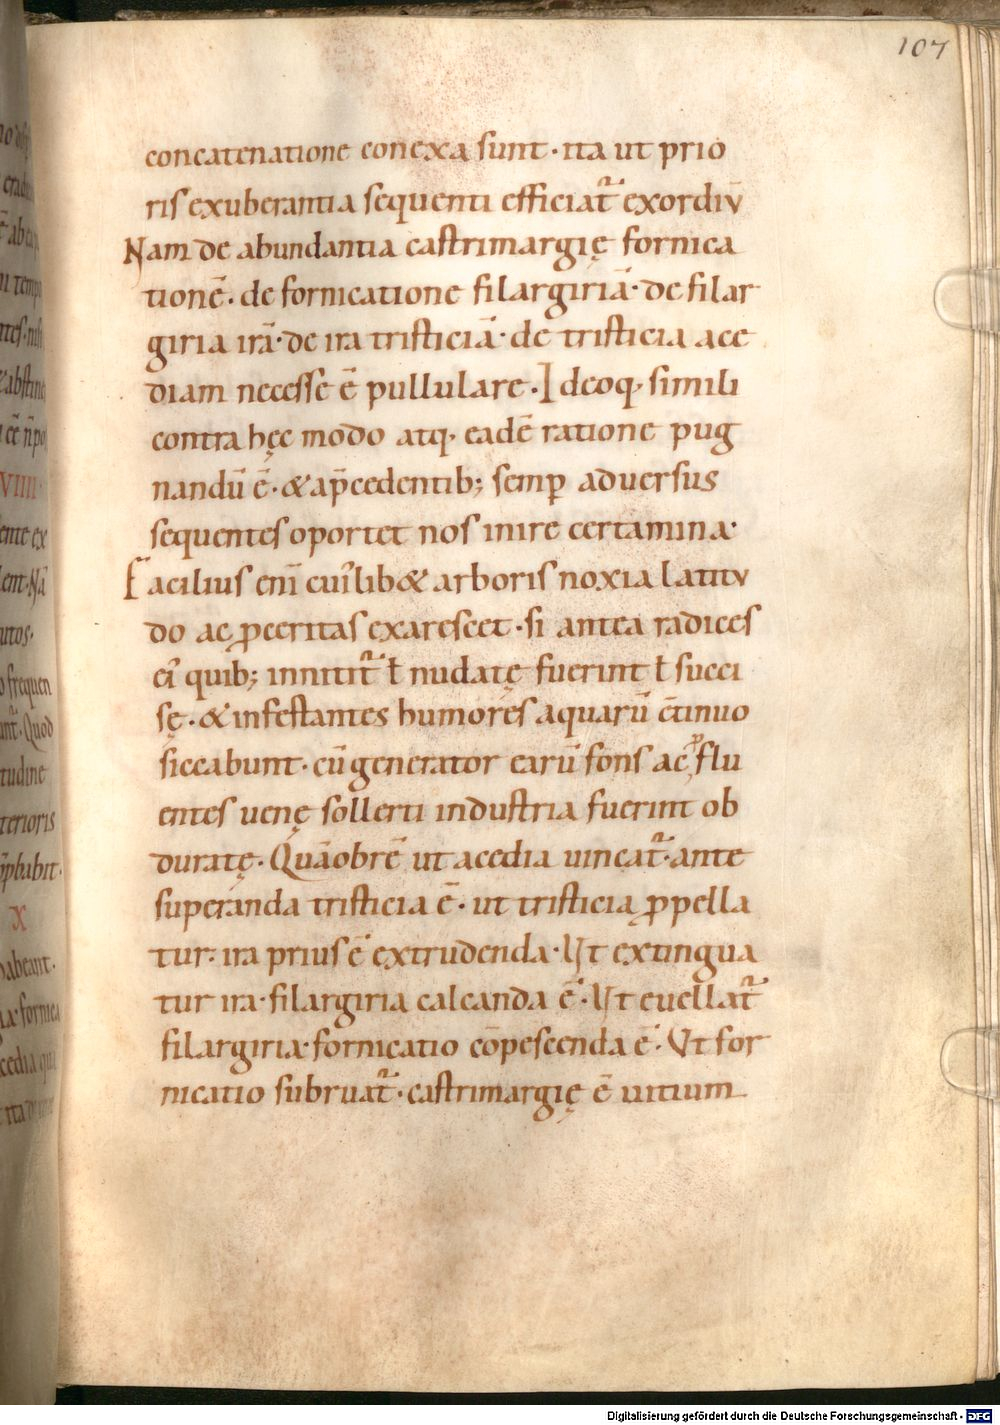 107
concatenatione conexa sunt · ita ut prio
ris exuberantia sequenti efficiat᷑ exordiũ
Nam de abundantia castrimargię fornica
tionē · de fornicatione filargiriā · de filar
giria irā · de ira tristiciā · de tristicia ace
diam necesse ē pullulare · Ideoq· simili
contra hęc modo atq· eadē ratione pug
nandū ē · & a p̄cedentib; semp̲ aduersus
sequentes oportet nos inire certamina ·
Facilius eni᷑ cui᷑lib& arboris noxia latitu
do ac ꝓceritas exarescet · si antea radices
ei᷑ quib; innitit᷑ ƚ nudatę fuerint ƚ succi
sę · & infestantes humores aquarū c̄tinuo
siccabunt · cū generator earū fons ac ꝓflu
entes uenę sollerti industria fuerint ob
duratę · Quāobrē ut acedia uincat᷑ · ante
superanda tristicia ē · ut tristicia ꝓpella
tur · ira prius ē extrudenda · Ut extingua
tur ira · filargiria calcanda ē · Ut euellat᷑
filargiria · fornicatio cōpescenda ē · Ut for
nicatio subruat᷑ · castrimargię ē uitium
Digitalisierung gefördert durch die Deutsche Forschungsgemeinschaft - DFG